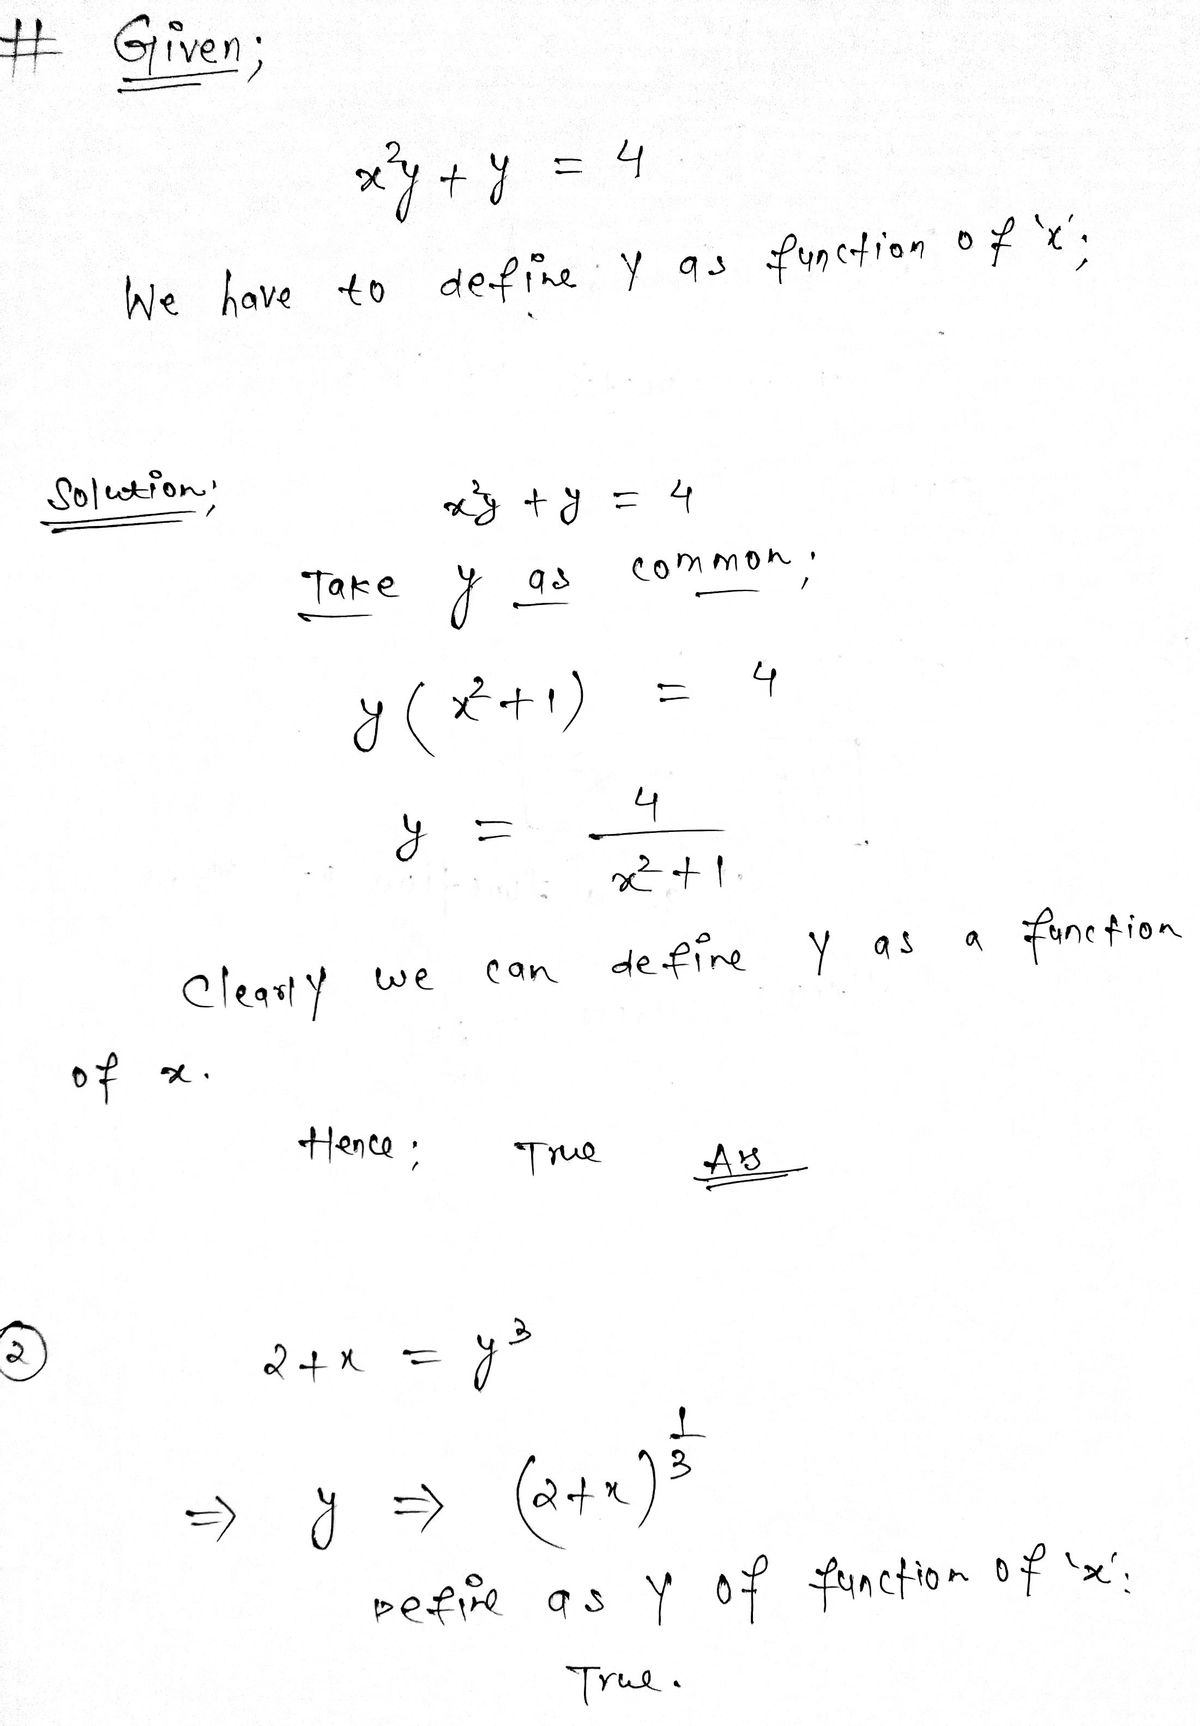 # Given;
x²y + y = 4
We have to define y as function of 'x';
Solution;
x²y + y = 4
Take y as common;
y(x²+1) = 4
y = 4/(x²+1)
Clearly we can define y as a function
of x.
Hence; True Ans
② 2+x = y³
⇒ y ⇒ (2+x)^(1/3)
Define as y of function of 'x':
True.